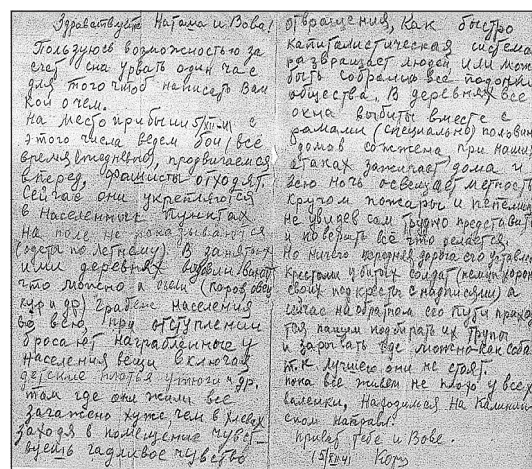 Здравствуйте Наташа и Вова!
Пользуюсь возможностью за
счет сна урвать один час
для того чтоб написать Вам
кой о чем.
На место прибыли 5/XII-41 с
этого числа ведем бои (все
время ежедневно), продвигаемся
вперед, фашисты отходят.
Сейчас они укрепляются
в населенных пунктах
на поле не показываются
(одеты по летнему). В занятых
ими деревнях
что можно а скот (коров, овец
кур и др.) грабеже населения
во всю, при отступлении
бросают награбленные у
населения вещи включая
детские платья утюги и др.
там где они жили все
загажено хуже, чем в хлевах
заходя в помещение чувст-
вуешь гадливое чувство
отвращения, Как быстро
капиталистическая система
развращает людей, или может
быть собраны все подонки
общества. В деревнях все
окна выбиты вместе с
рамами (специально) половина
домов сожжена при наших
атаках зажигает дома и
всю ночь освещает местность
кругом пожары и пепелища
не увидев сам трудно представить
и поверить всё что делается.
Но ничего дорога его уставлена
крестами убитых солдат (немцы хоронят
своих под кресты с надписями) а
сейчас на обратном его пути прихо-
дится нашим подбирать их трупы
и зарывать где можно как собак
т.к. лучшего они не стоят.
пока все живем не плохо у всех
валенки, Находимся на Калинин-
ском направл.
привет тебе и Вове.
15/XII-41